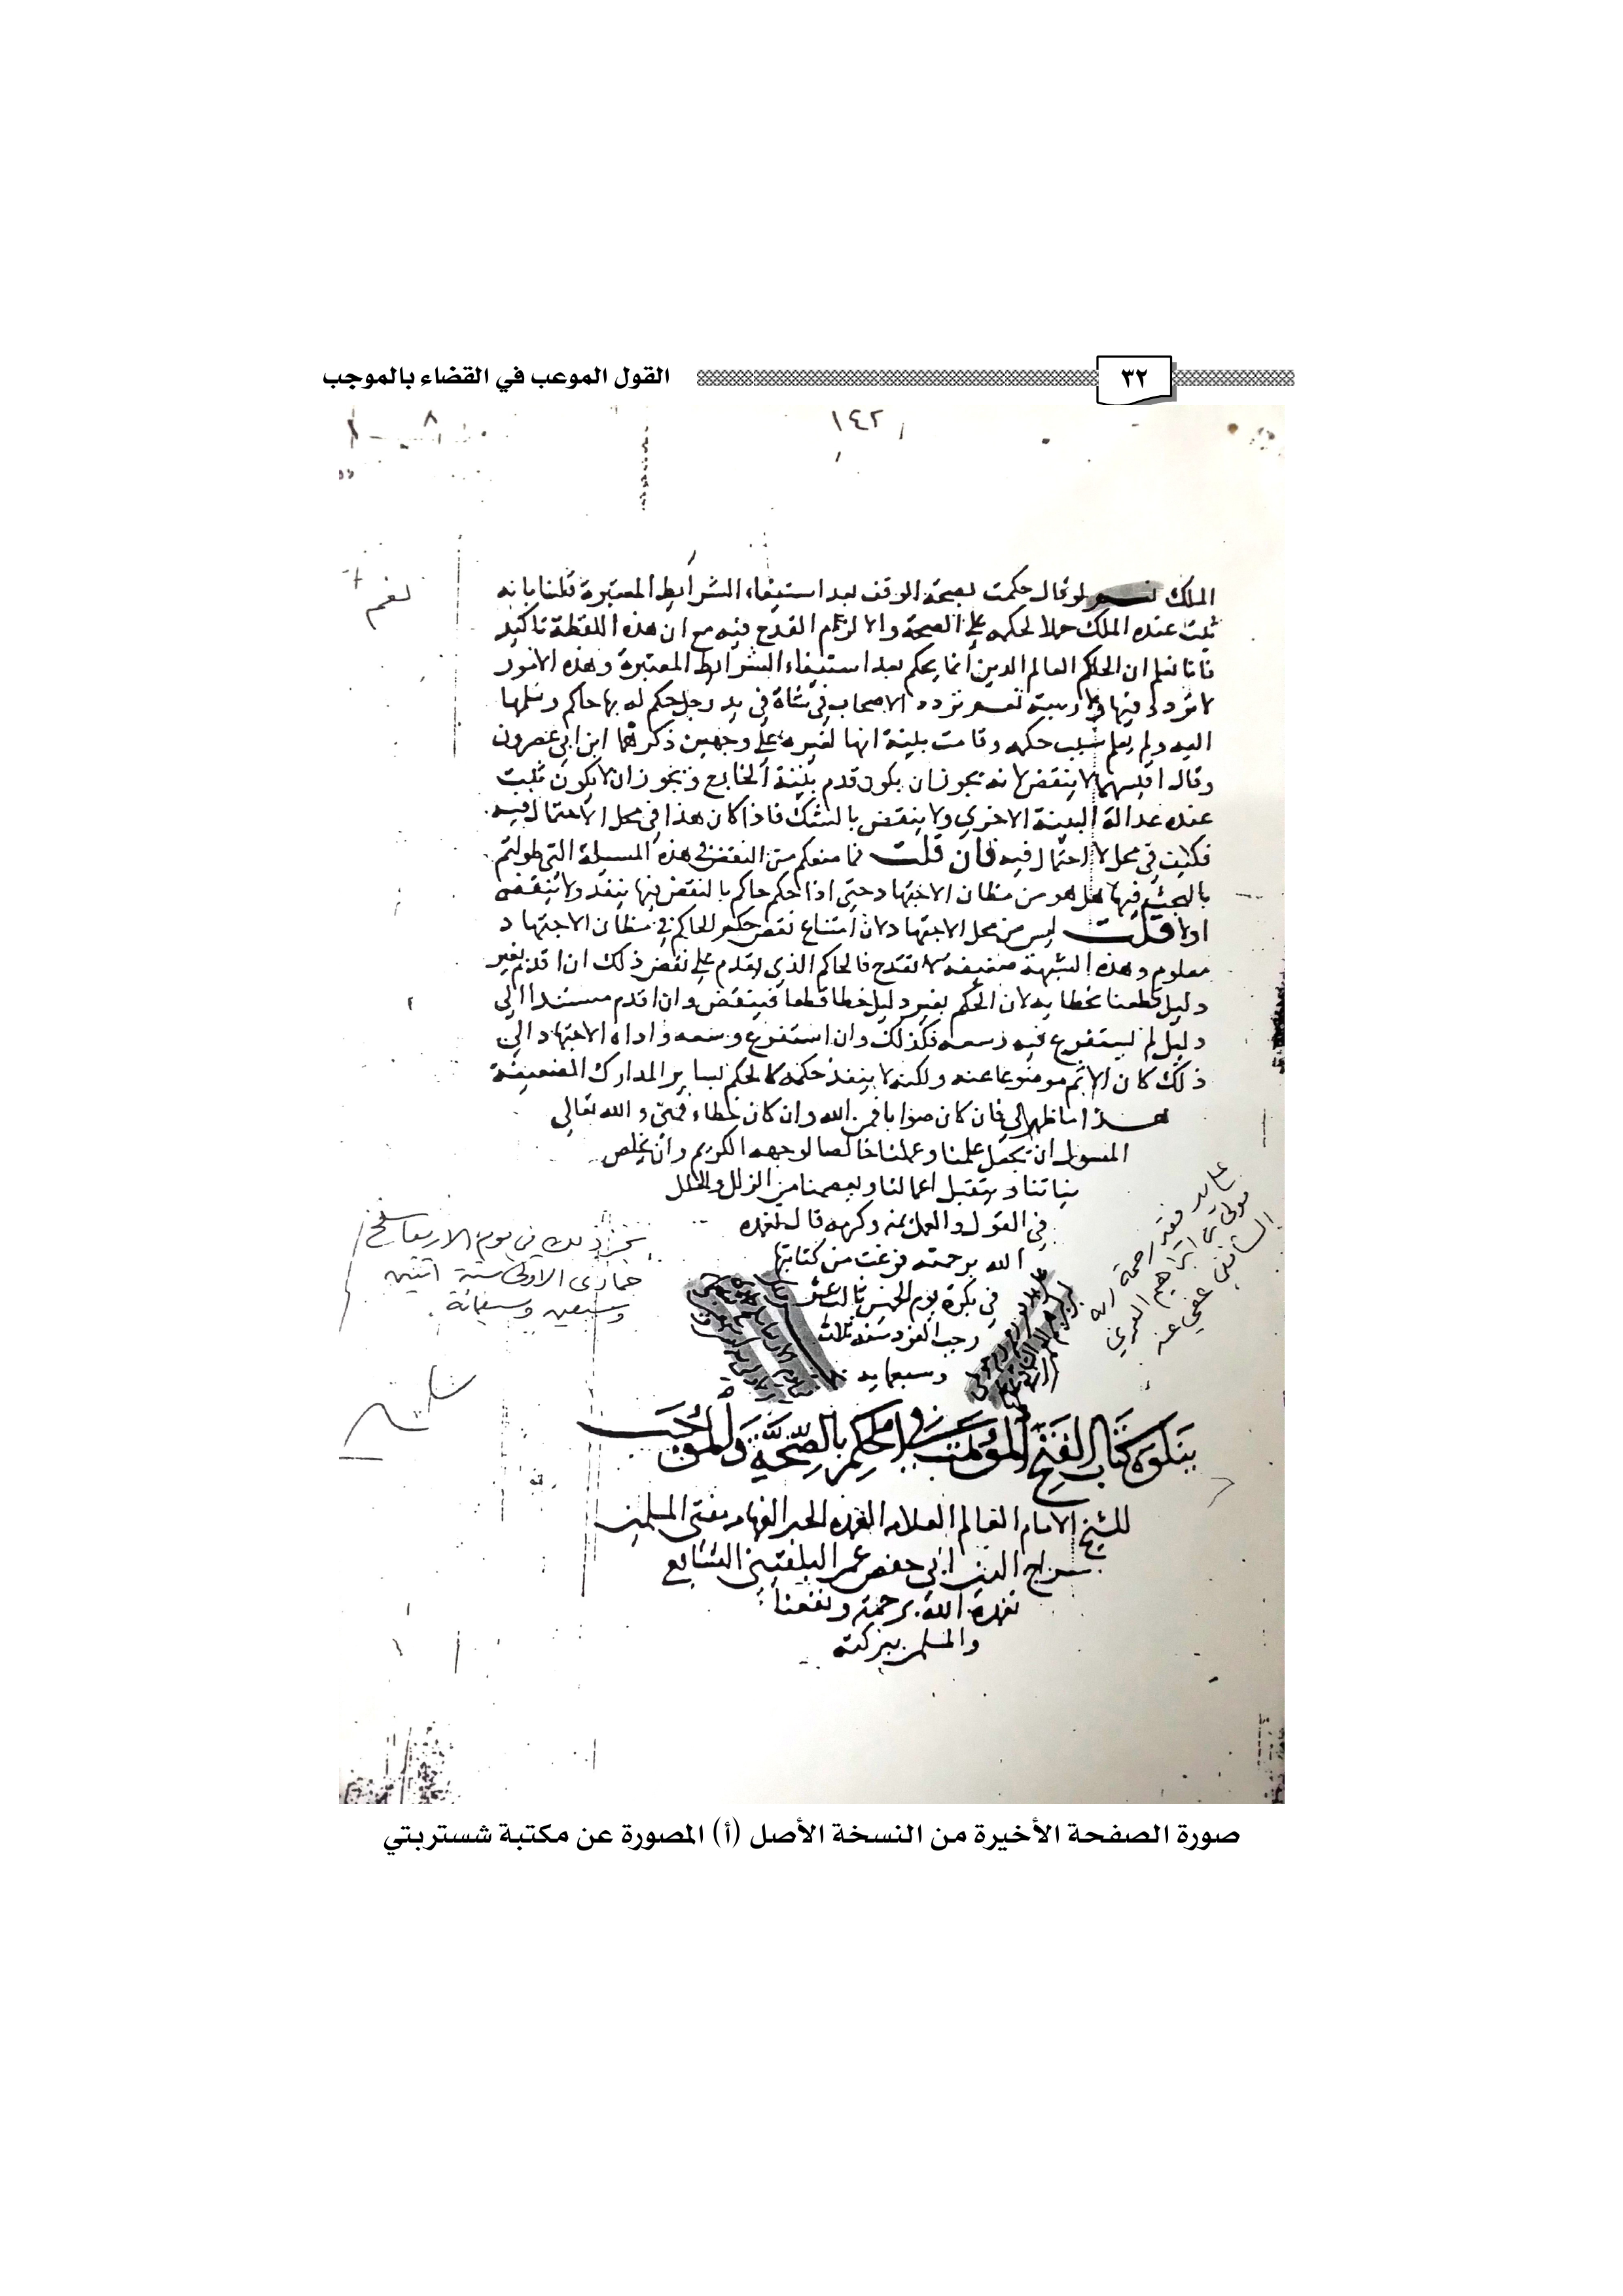 ٣٢
القول الموعب في القضاء بالموجب
١٤٢
الملك نعم لو قال حكمت بصحة الوقف بعد استيفاء الشرايط المعتبرة قلنا بانه
ثبت عنده الملك حملا لحكمه على الصحة والا لزام القدح فيه مع ان هذه اللفظة تاكيد
فانا نعلم ان الحاكم العالم الدين انما يحكم بعد استيفاء الشرايط المعتبرة وهذه الامور
لا تردد فيها ولا ريبة نعم تردد الاصحاب في شاة في يد رجل حكم له بها حاكم وسلمها
اليه ولم يعلم سبب حكمه وقامت بينة انها لغيره على وجهين ذكرهما ابن ابي عصرون
وقال اقيسهما لا ينقض لانه يجوز ان يكون قدم بينة الخارج ويجوز ان لا يكون ثبت
عنده عدالة البينة الاخري ولا ينقض بالشك فاذا كان هذا في محل الاحتمال فيه
فكيف في محل لا احتمال فيه فان قلت فما منعكم من النقض في هذه المسيلة التي طولتم
بالبحث فيها هل هو من مظان الاجتهاد حتى اذا حكم حاكم بالنقض فيها ينفذ ولا ينقض
اولا قلت ليس من محل الاجتهاد لان امتناع نقض حكم الحاكم في مظان الاجتهاد
معلوم وهذه الشبهة ضعيفة لا تقدح فالحاكم الذي يقدم على نقض ذلك ان اقدم بغير
دليل قطعنا بخطا به لان الحكم بغير دليل خطا قطعا فينقض وان اقدم مستندا الى
دليل لم يستفرغ فيه وسعه فكذلك وان استفرغ وسعه واداه الاجتهاد الى
ذلك كان الاثم موضوعا عنه ولكنه لا ينفذ حكمه كالحكم بساير المدارك الضعيفة
هذا ما ظهر لي فان كان صوابا فمن الله وان كان خطاء فمني والله تعالى
المسول ان يجعل علمنا وعملنا خالصا لوجهه الكريم وان يخلص
نياتنا ويتقبل اعمالنا ويعصمنا من الزلل والخلل
في القول والعمل بمنه وكرمه قال تغمده
الله برحمته فرغت من كتابتها
في بكرة يوم الخميس ثالث عشر
رجب الفرد سنة ثلاث
وسبعماية
نجز ذلك في يوم الاربعا سلخ
جمادى الاولى سنة اثنين
وسبعين وسبعمائة
على يد فقير رحمة ربه
ابراهيم
الشافعي عفي عنه
يتلوه كتاب الفتح الموهب في الحكم بالصحة والموجب
للشيخ الامام العالم العلامه العمده الحبر الفهامه مفتي المسلمين
سراج الدين ابي حفص عمر البلقيني الشافعي
تغمده الله برحمته ونفعنا
والمسلمين ببركته
صورة الصفحة الأخيرة من النسخة الأصل (أ) المصورة عن مكتبة شستربتي